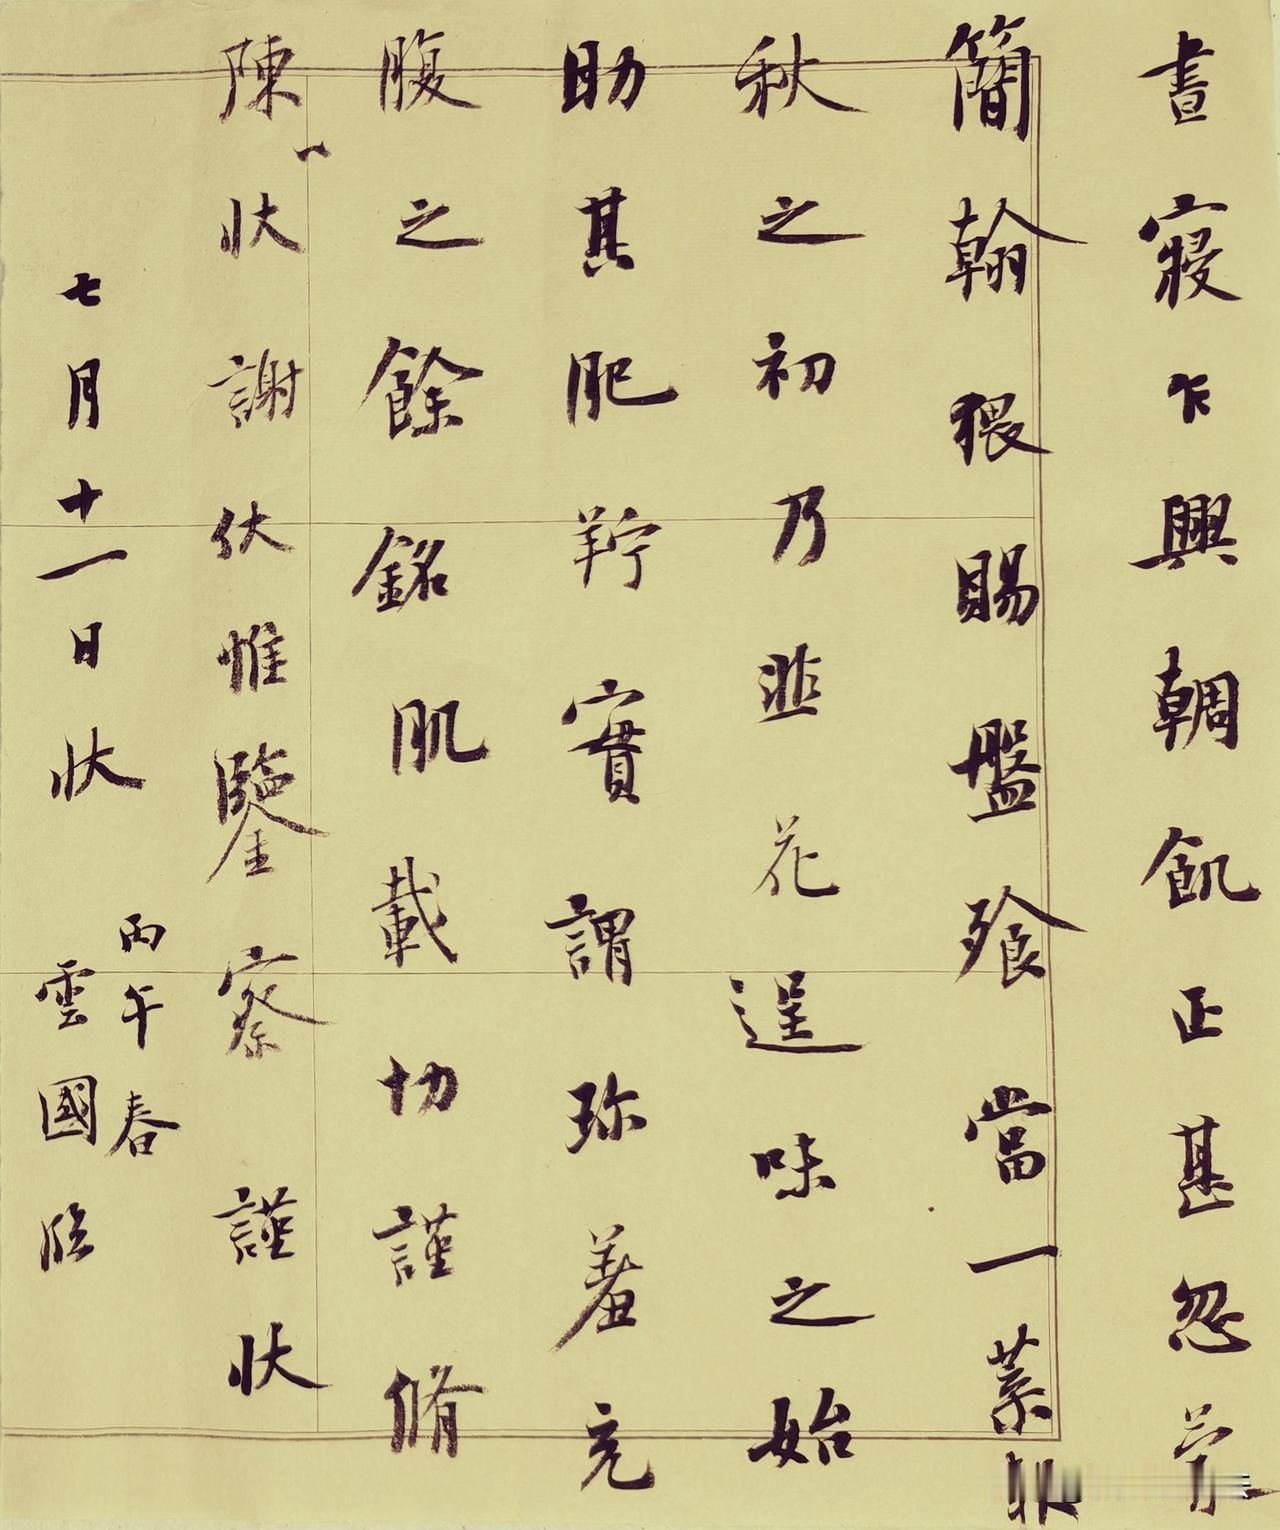 晝寢乍興輖飢正甚忽蒙
簡翰猥賜盤飧當一葉報
秋之初乃韭花逞味之始
助其肥羜實謂珎羞充
腹之餘銘肌載切謹脩
陳狀謝伏惟鑒察謹狀
七月十一日狀
丙午春
雲國臨